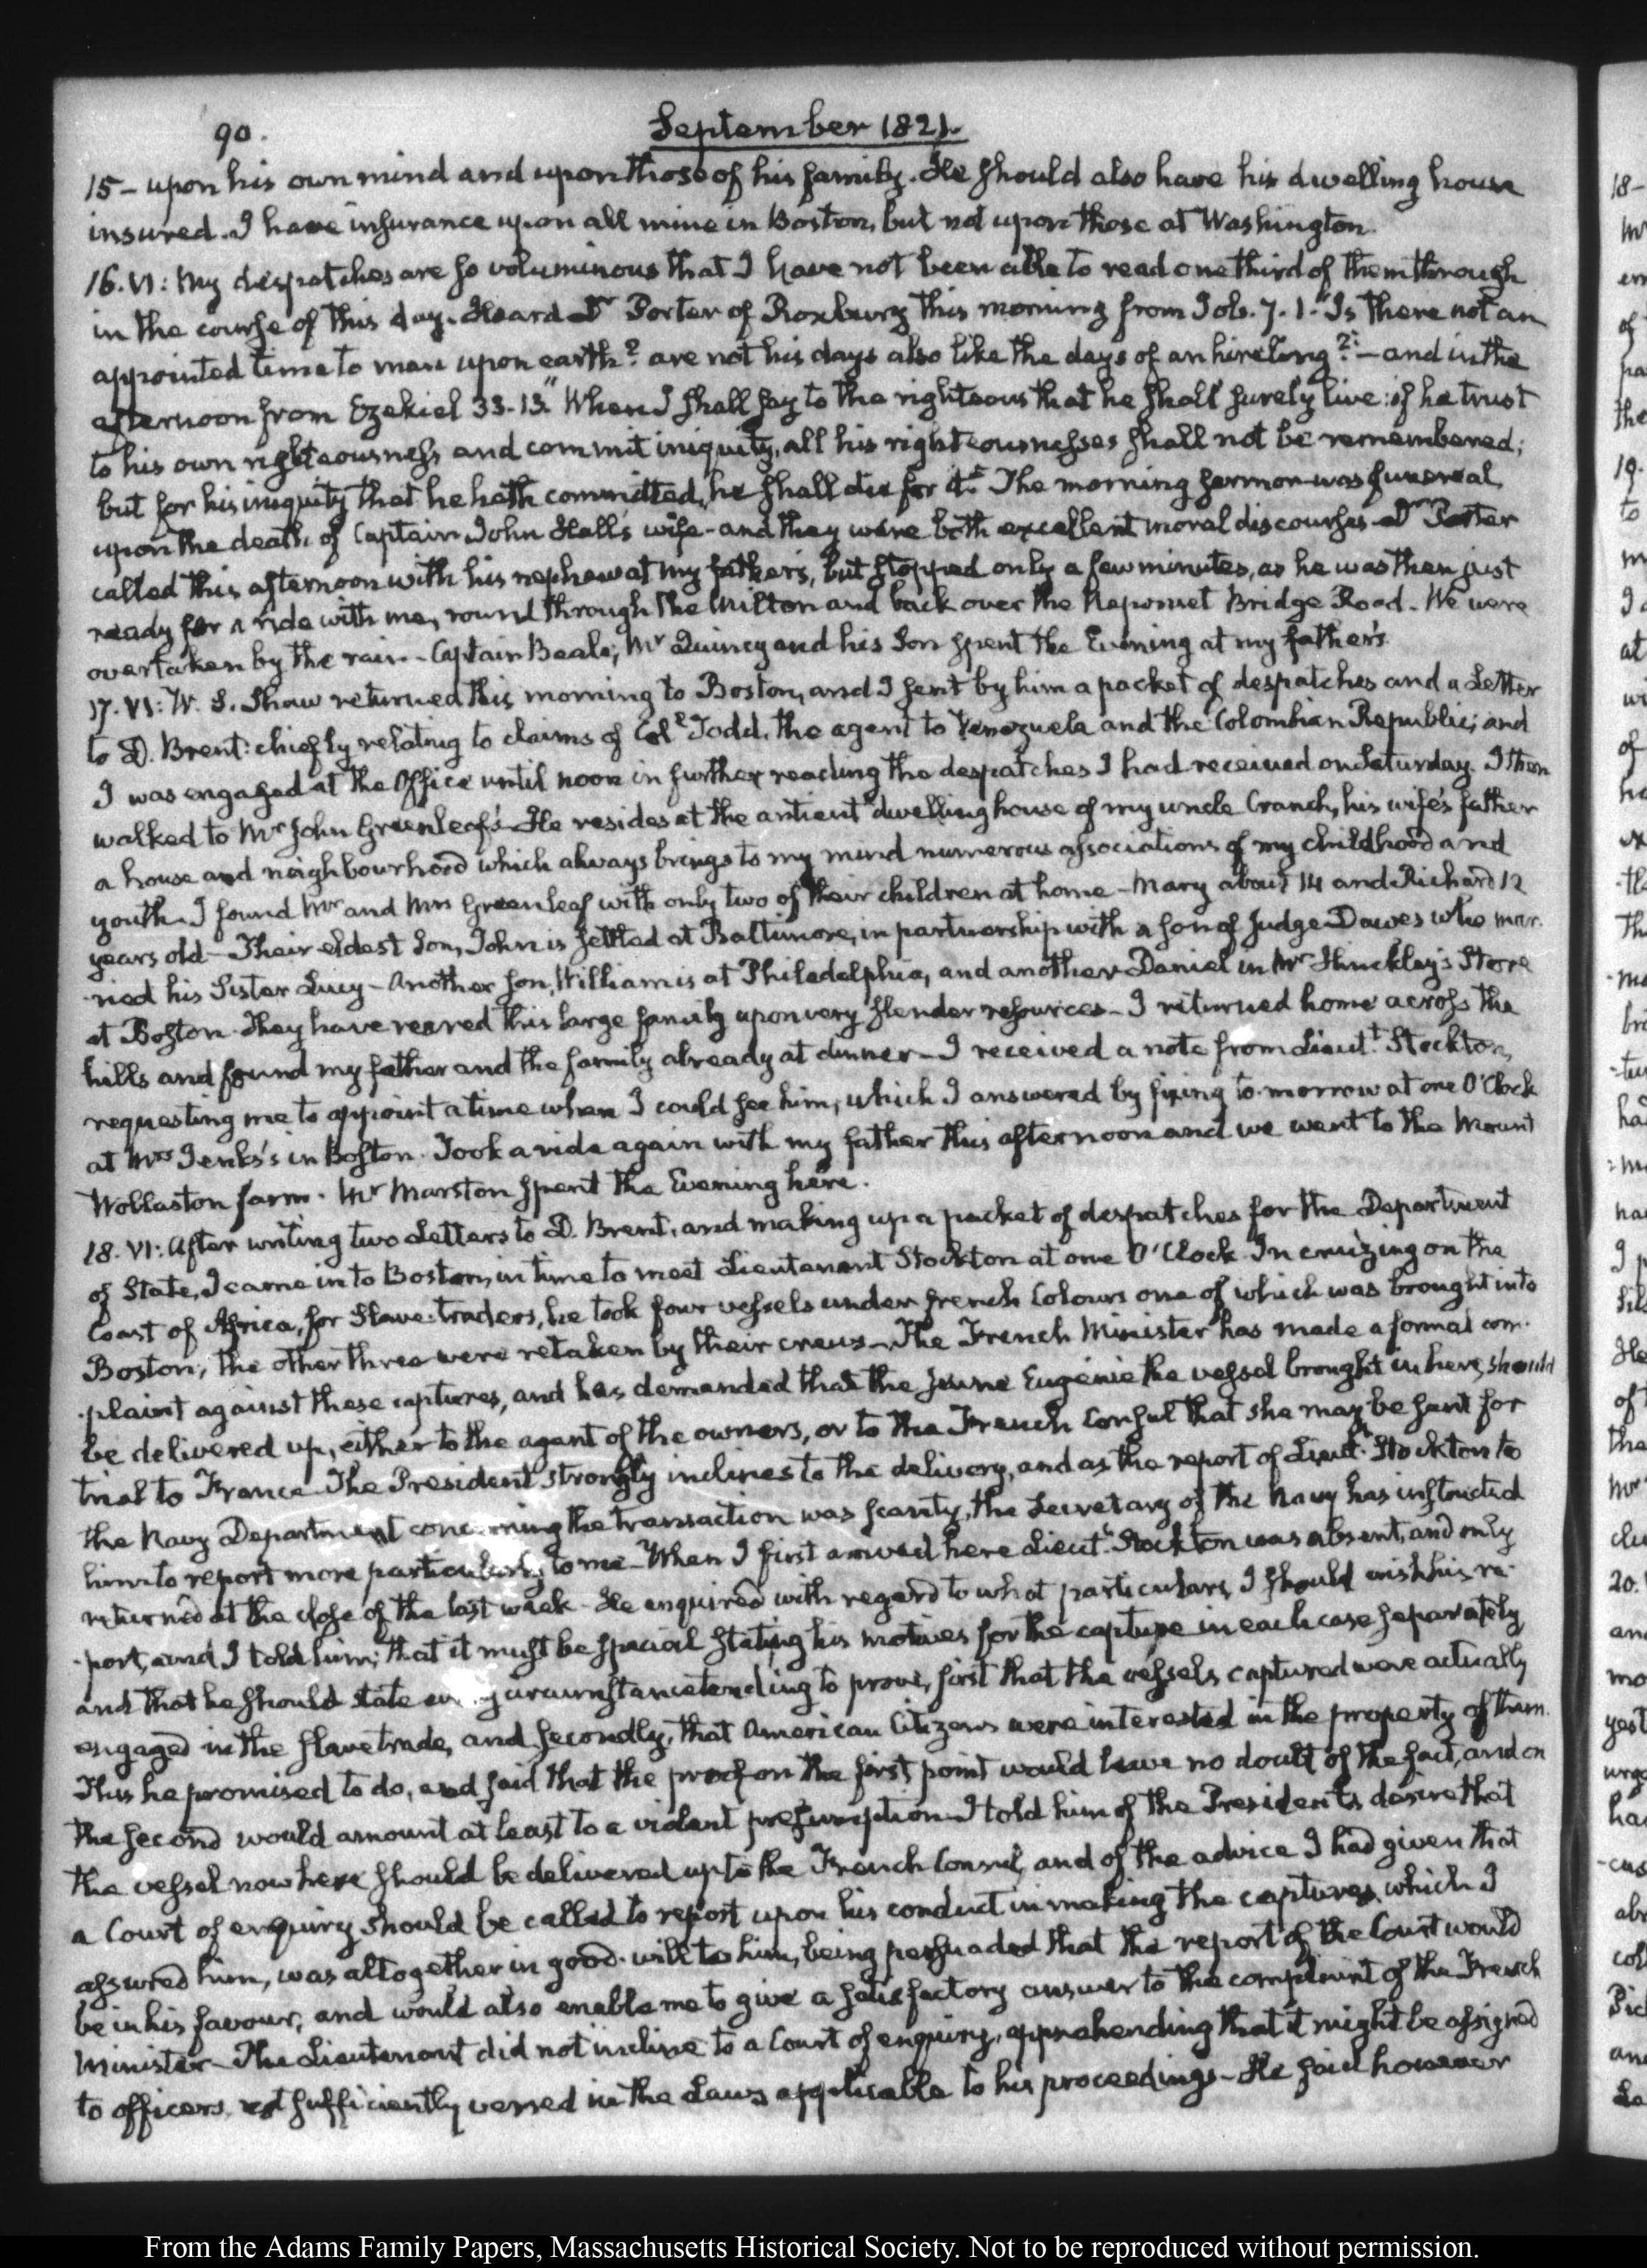 90.
September 1821.
15 – upon his own mind and upon those of his family. He should also have his dwelling house
insured. I have insurance upon all mine in Boston, but not upon those at Washington.
16. VI: My despatches are so voluminous that I have not been able to read one third of them through
in the course of this day. Heard Dr Porter of Roxbury this morning from Job. 7. 1. "Is there not an
appointed time to man upon earth? are not his days also like the days of an hireling?" – and in the
afternoon from Ezekiel 33. 13. "When I shall say to the righteous that he shall surely live: if he trust
to his own righteousness and commit iniquity, all his righteousnesses shall not be remembered;
but for his iniquity that he hath committed, he shall die for it." The morning sermon was funereal,
upon the death of Captain John Hall's wife – and they were both excellent moral discourses – Dr Porter
called this afternoon with his nephew at my father's, but stopped only a few minutes, as he was then just
ready for a ride with me, round through the Milton and back over the Neponset Bridge Road. We were
overtaken by the rain – Captain Beale, Mr Quincy and his Son spent the Evening at my father's.
17. VI: W. S. Shaw returned this morning to Boston, and I sent by him a packet of despatches and a Letter
to D. Brent: chiefly relating to claims of Coll Todd, the agent to Venezuela and the Colombian Republic; and
I was engaged at the Office until noon in further reading the despatches I had received on Saturday. I then
walked to Mr John Greenleaf's – He resides at the antient dwelling house of my uncle Cranch, his wife's father
a house and neighbourhood which always brings to my mind numerous associations of my childhood and
youth. I found Mr and Mrs Greenleaf with only two of their children at home – Mary about 14 and Richard 12
years old – Their eldest Son, John is settled at Baltimore, in partnership with a son of Judge Dawes who mar-
-ried his Sister Lucy – Another son, William is at Philadelphia, and another Daniel in Mr Hinckley's Store
at Boston. They have reared this large family upon very slender resources – I returned home across the
hills and found my father and the family already at dinner – I received a note from Lieutt Stockton,
requesting me to appoint a time when I could see him, which I answered by fixing to-morrow at one O'Clock
at Mrs Jenks's in Boston. Took a ride again with my father this afternoon and we went to the Mount
Wollaston farm. Mr Marston spent the Evening here.
18. VI: After writing two Letters to D. Brent, and making up a packet of despatches for the Department
of State, I came in to Boston, in time to meet Lieutenant Stockton at one O'Clock. In cruizing on the
Coast of Africa, for Slave-traders, he took four vessels under french Colours one of which was brought into
Boston; the other three were retaken by their crews – The French Minister has made a formal com-
-plaint against these captures, and has demanded that the Jeune Eugenie the vessel brought in here, should
be delivered up, either to the agent of the owners, or to the French Consul that she may be sent for
trial to France. The President strongly inclines to the delivery, and as the report of Lieutt Stockton to
the Navy Department concerning the transaction was scanty, the Secretary of the Navy has instructed
him to report more particularly to me – When I first arrived here Lieutt Stockton was absent, and only
returned at the close of the last week – He enquired with regard to what particulars I should wish his re-
-port, and I told him, that it must be special stating his motives for the capture in each case separately
and that he should state every circumstance tending to prove, first that the vessels captured were actually
engaged in the slave trade, and secondly, that American Citizens were interested in the property of them.
This he promised to do, and said that the proof on the first point would leave no doubt of the fact, and on
the second would amount at least to a violent presumption – I told him of the President's desire that
the vessel now here should be delivered up to the French Consul, and of the advice I had given that
a Court of enquiry should be called to report upon his conduct in making the captures, which I
assured him, was altogether in good-will to him, being persuaded that the report of the Court would
be in his favour, and would also enable me to give a satisfactory answer to the complaint of the French
Minister – The Lieutenant did not incline to a Court of enquiry, apprehending that it might be assigned
to officers not sufficiently versed in the Laws applicable to his proceedings – He said however
From the Adams Family Papers, Massachusetts Historical Society. Not to be reproduced without permission.